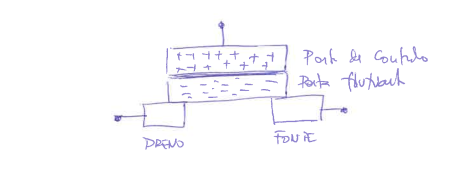 + + + + + + + +
+ + + + + + +
Porta de Controlo
Porta flutuante
DRENO
FONTE